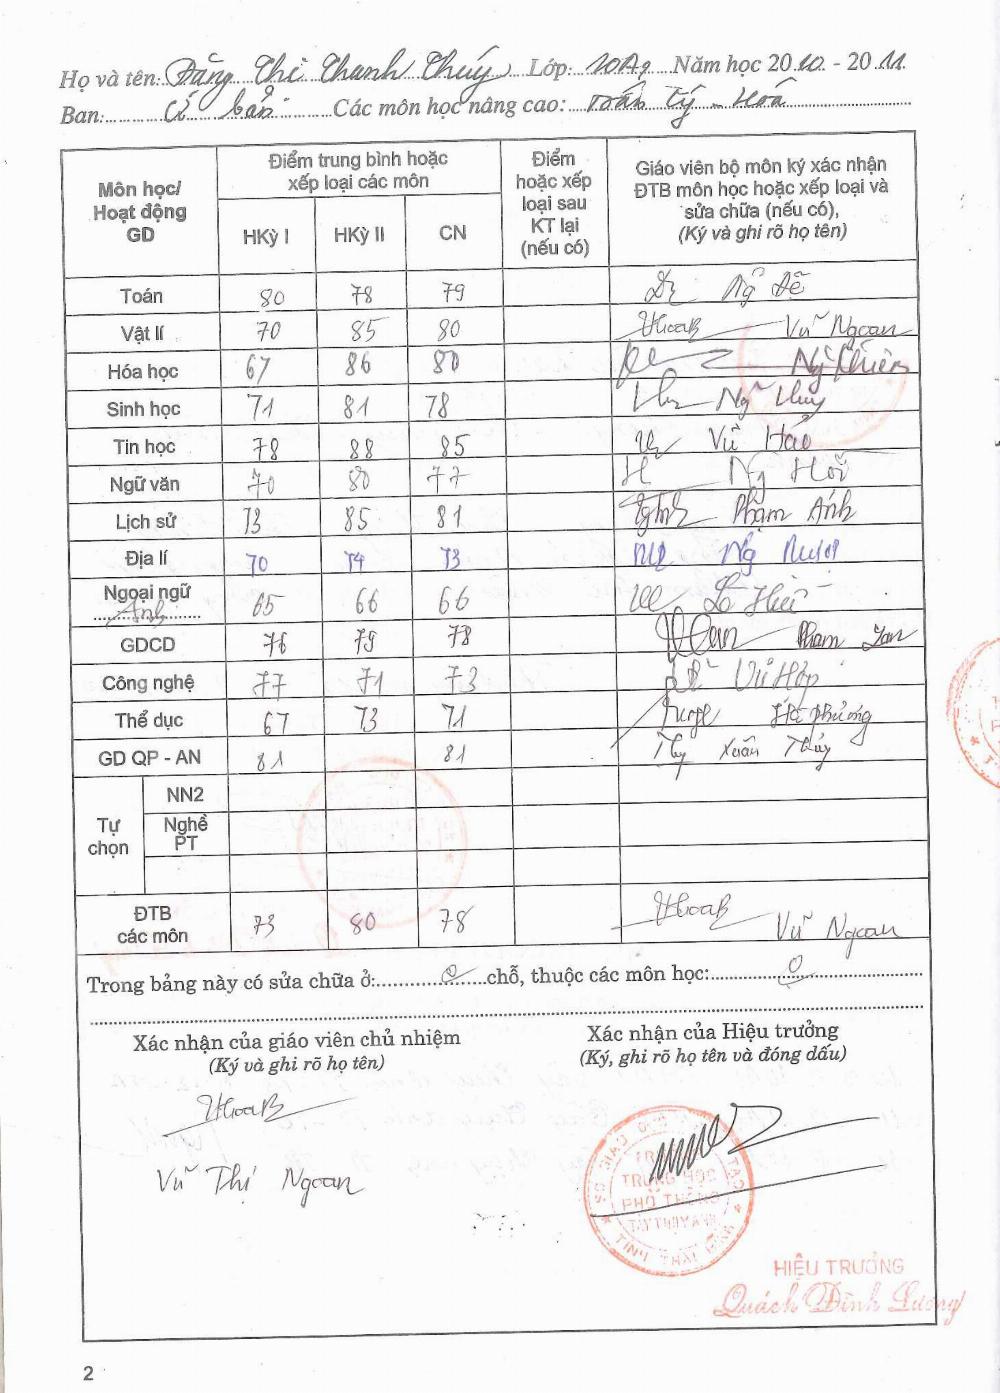 Họ và tên: Đặng Thị Thanh Thúy Lớp: 10A9 Năm học 2010 - 2011
Ban: Cơ bản Các môn học nâng cao: Toán Lý - Hoá
Môn học/ Hoạt động GD
Điểm trung bình hoặc xếp loại các môn
Điểm hoặc xếp loại sau KT lại (nếu có)
Giáo viên bộ môn ký xác nhận ĐTB môn học hoặc xếp loại và sửa chữa (nếu có), (Ký và ghi rõ họ tên)
HKỳ I HKỳ II CN
Toán 80 78 79 Ng Dễ
Vật lí 70 85 80 Vũ Ngoan
Hóa học 67 86 80
Sinh học 71 81 78 Ng Thuý
Tin học 78 88 85 Vũ Hảo
Ngữ văn 70 80 77
Lịch sử 73 85 81 Phạm Ánh
Địa lí 70 74 73
Ngoại ngữ
Anh 65 66 66
GDCD 76 79 78
Công nghệ 77 71 73 Vũ Hợp
Thể dục 67 73 71 Hà Phương
GD QP - AN 81 81 Xuân Thủy
Tự chọn
NN2
Nghề PT
ĐTB các môn 73 80 78 Vũ Ngoan
Trong bảng này có sửa chữa ở: 0 chỗ, thuộc các môn học: 0
Xác nhận của giáo viên chủ nhiệm
(Ký và ghi rõ họ tên)
Xác nhận của Hiệu trưởng
(Ký, ghi rõ họ tên và đóng dấu)
Vũ Thị Ngoan
TRUNG HỌC
PHỔ THÔNG
TỈNH THÁI BÌNH
HIỆU TRƯỞNG
Quách Đình Lương
2